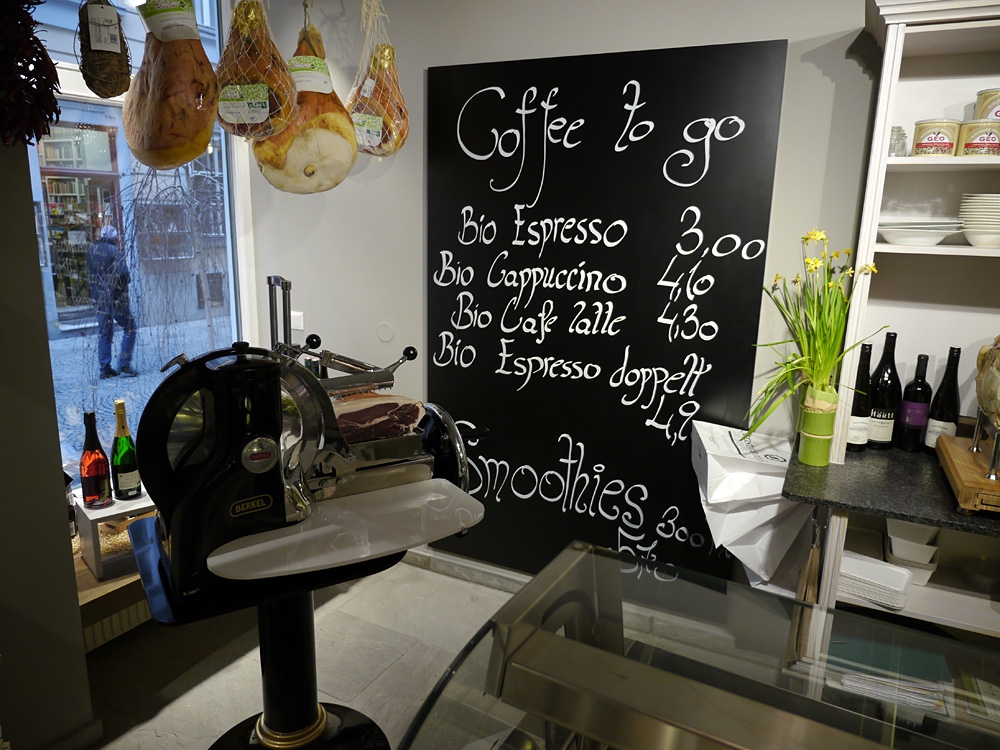 Coffee to go
Bio Espresso 3,00
Bio Cappuccino 4,10
Bio Cafe latte 4,30
Bio Espresso doppelt
4,9
Smoothies 300
5,10
BERKEL
GEO
GEO
Hartl